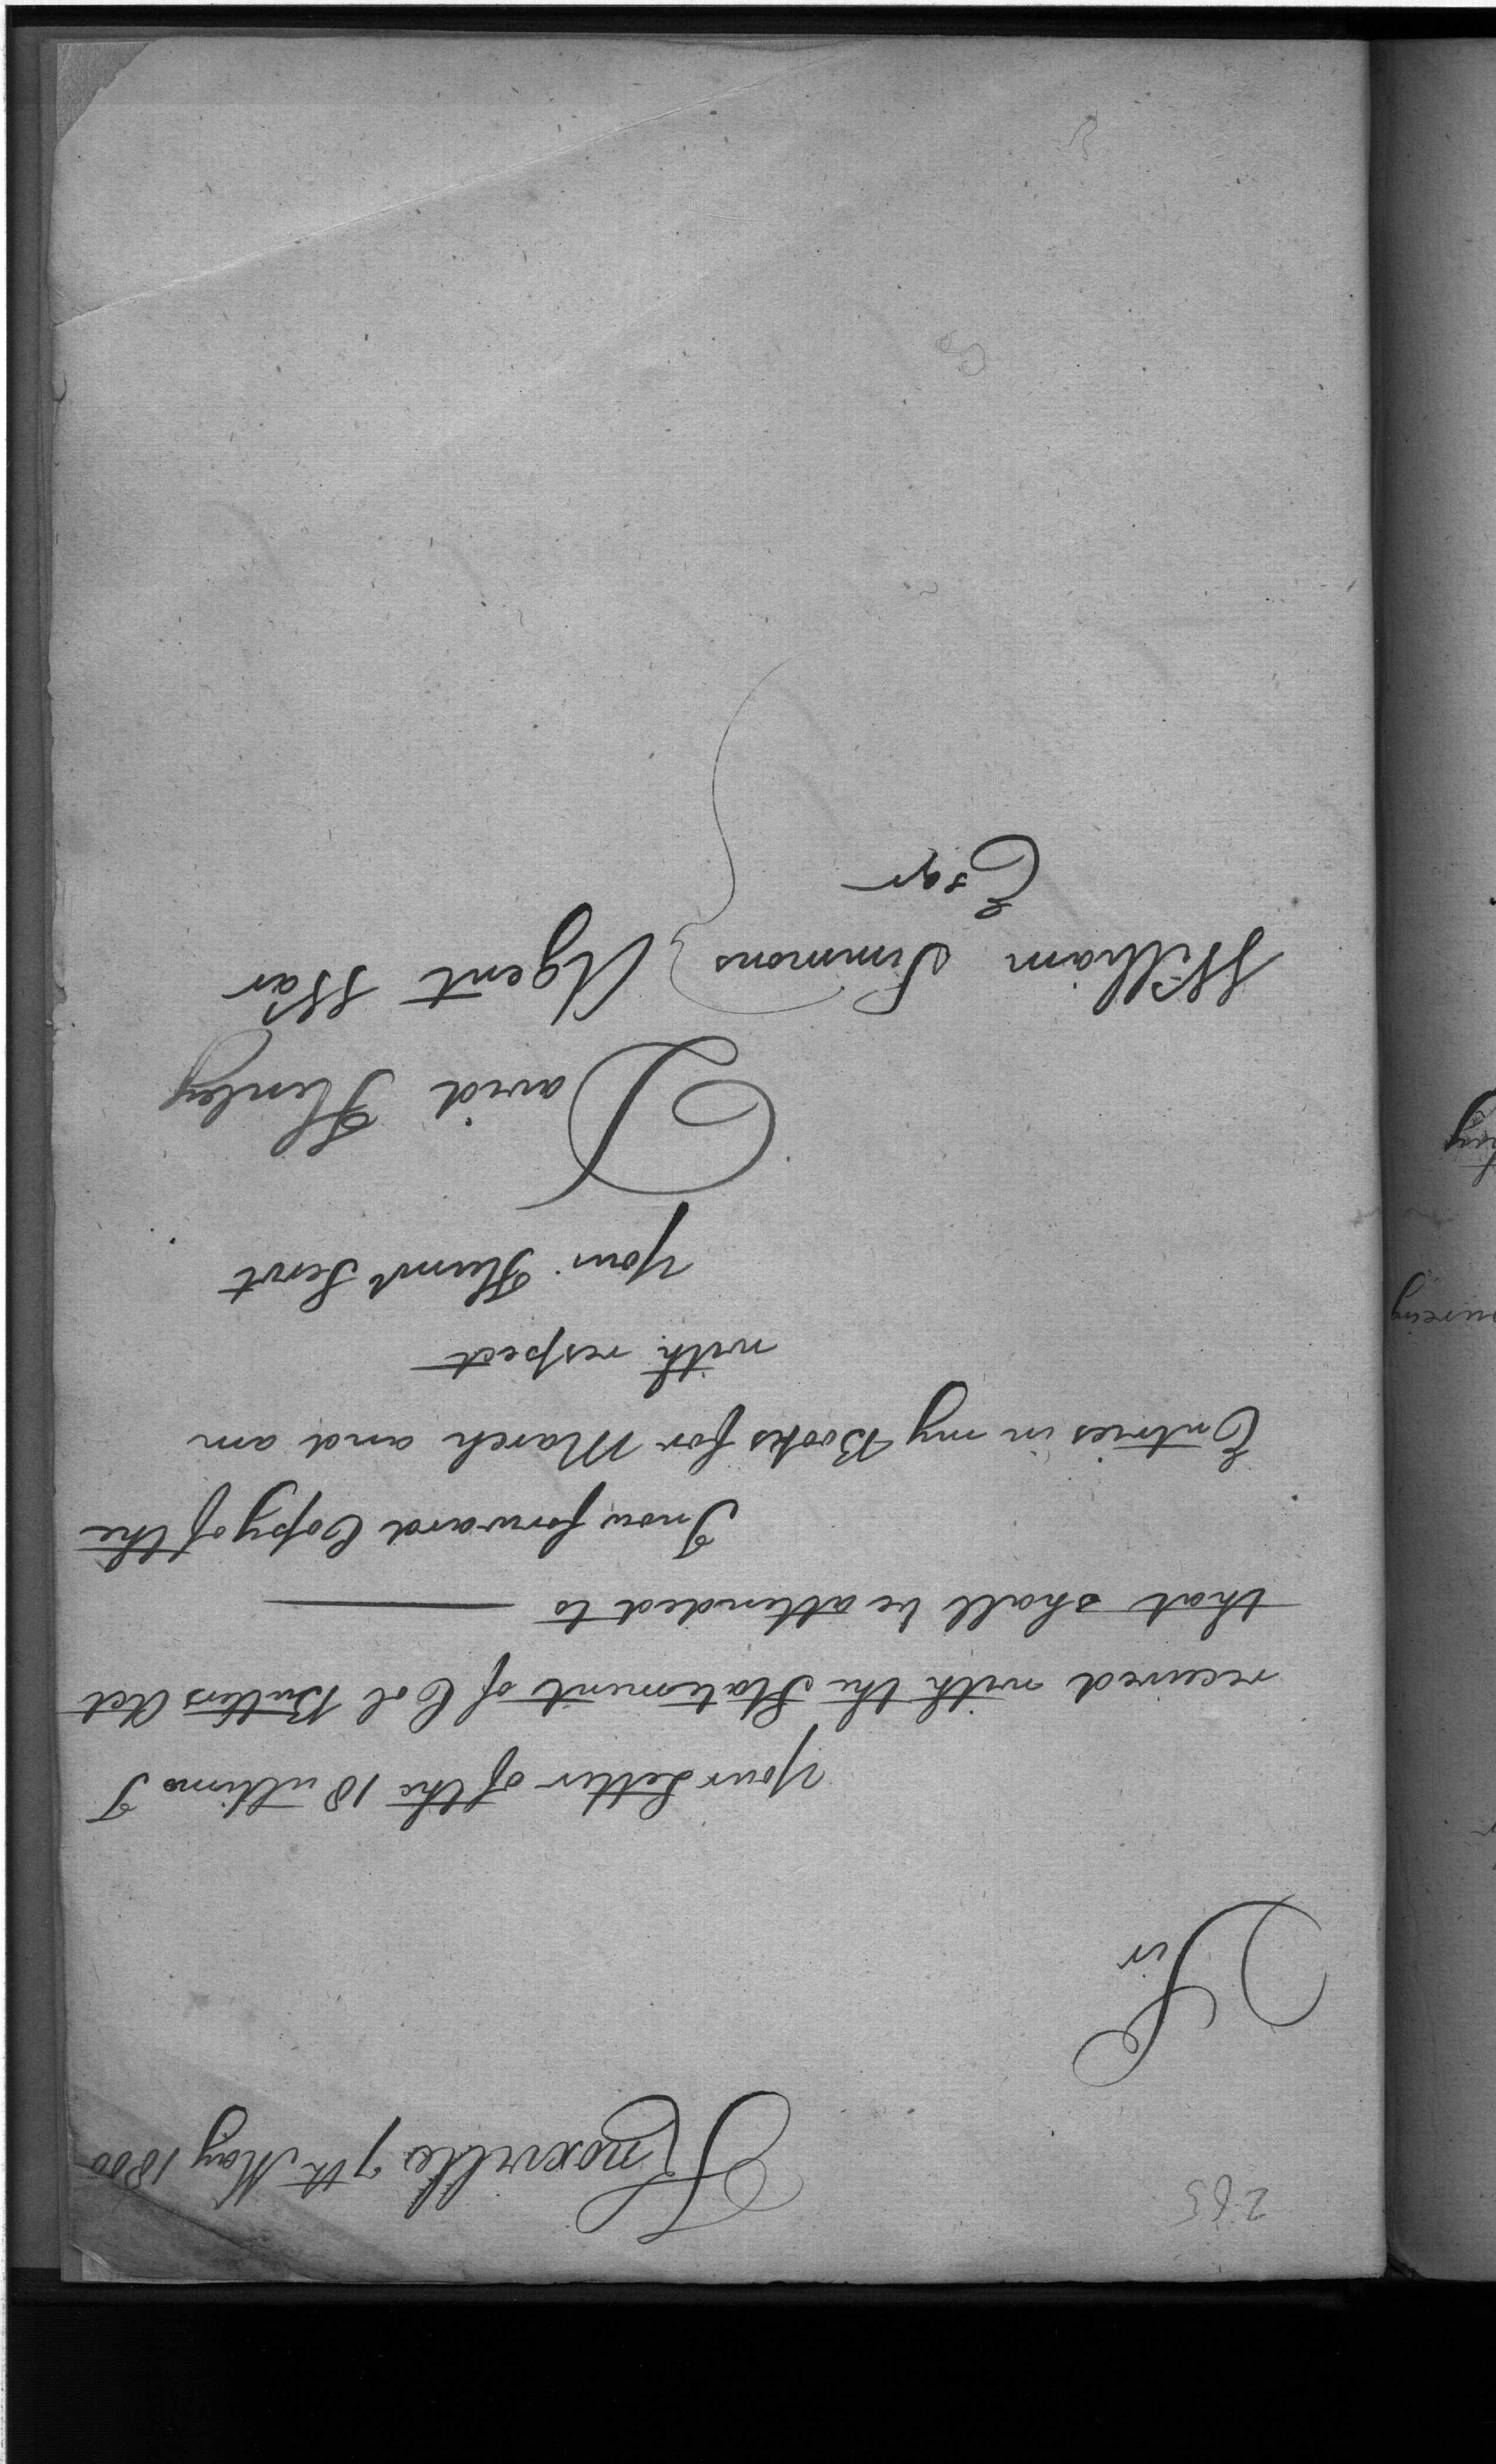 285
Knoxville 7th May 1800
Sir
Your Letter of the 18 ultimo I
received with the Statement of Col Butlers Act
that shall be attended to
I now forward Copy of the
Entries in my Books for March and am
with respect
Your Huml Servt
David Henley
William Simmons } Agent War
Esqr